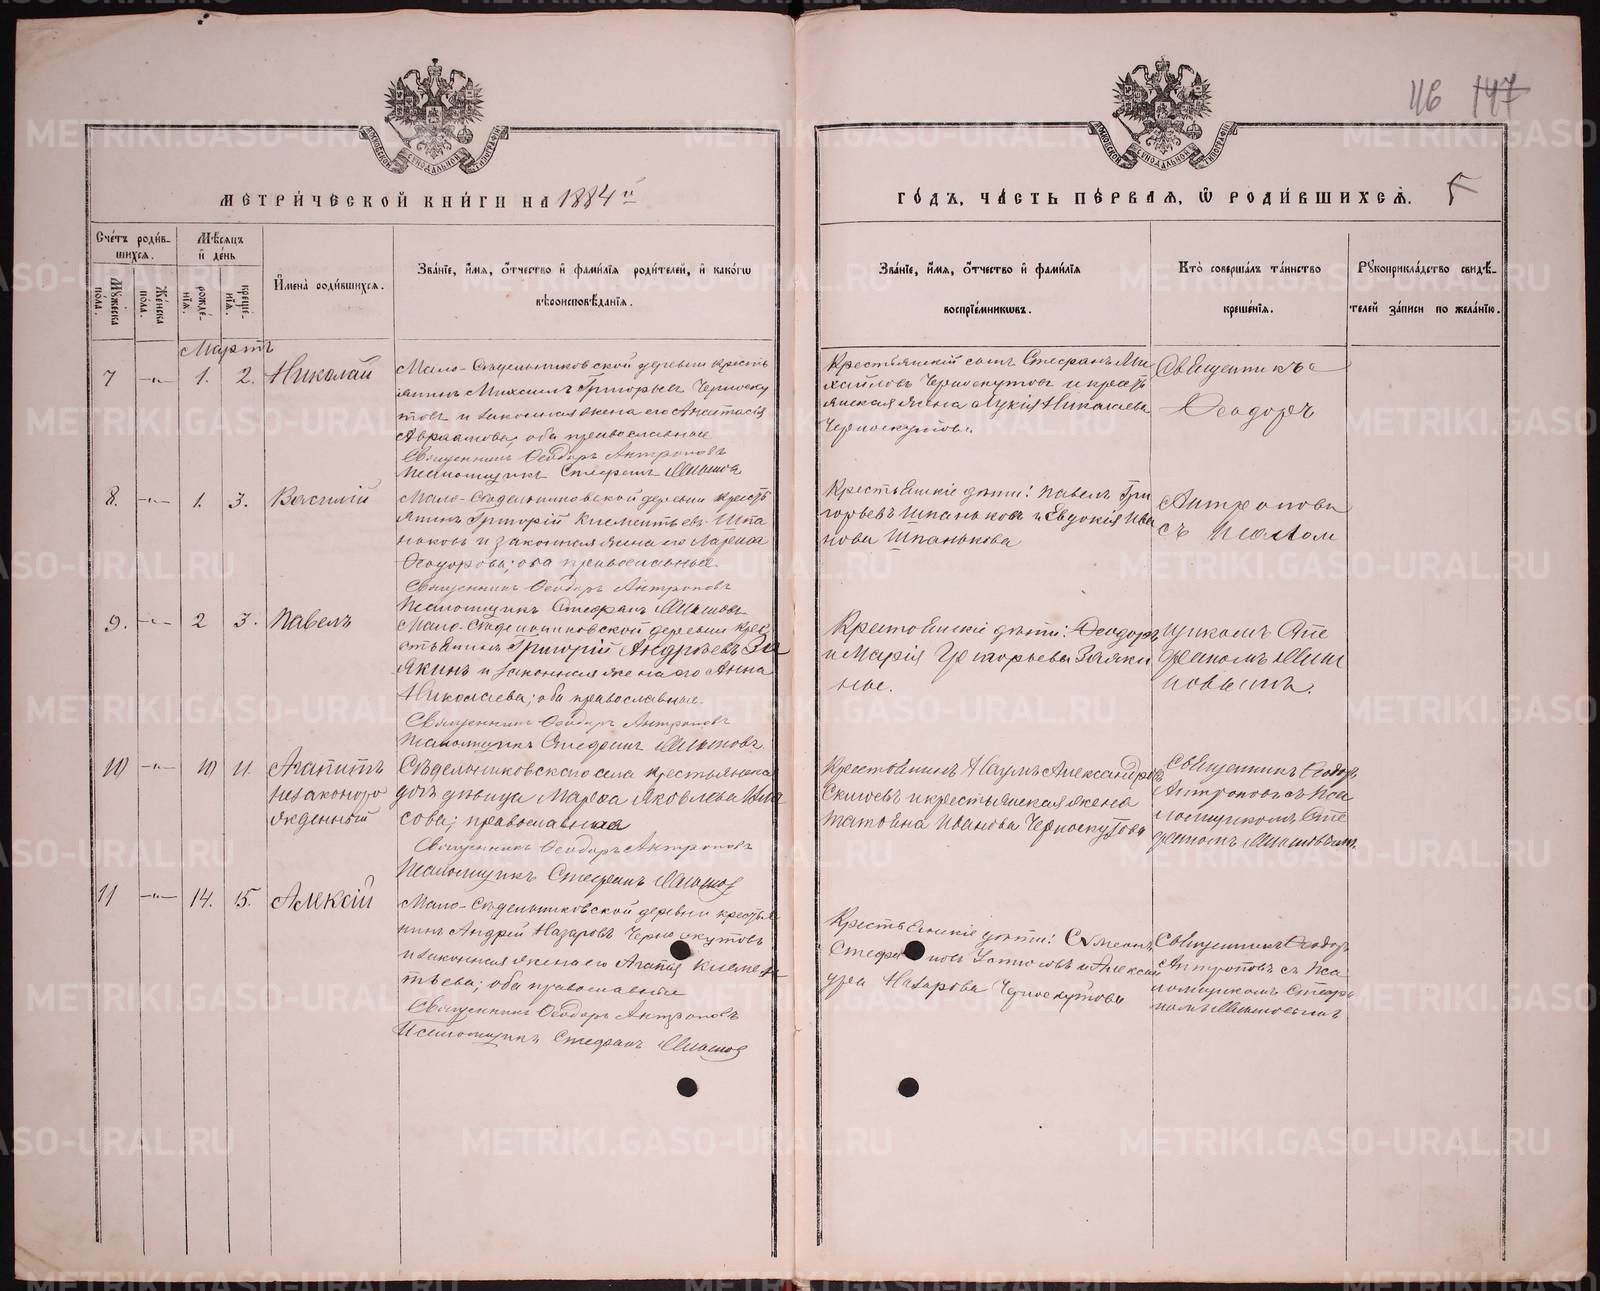 116 147
МЕТРИ́ЧЕСКОЙ КНИ́ГИ НА 1884 й
ГО́ДЪ, ЧА́СТЬ ПЕ́РВАЯ, Ѡ РОДИ́ВШИХСѦ.
Сче́тъ роди́в-
шихсѧ.
Мꙋ́жеска по́ла.
Же́нска по́ла.
Мѣ́сѧцъ
и҆ де́нь
рожде́-
нїѧ.
креще́-
нїѧ.
И҆мена̀ роди́вшихсѧ.
Зва́нїе, и҆́мѧ, ѻ҆́тчество и҆ фами́лїѧ роди́телей, и҆ како́гѡ
вѣроисповѣ́данїѧ.
Зва́нїе, и҆́мѧ, ѻ҆́тчество и҆ фами́лїѧ
воспрїе́мникѡвъ.
Кто̀ соверша́лъ та́инство
креще́нїѧ.
Рꙋкоприкла́дство свидѣ́-
телей за́писи по жела́нїю.
Мартъ
7 -"- 1. 2. Николай
Мало-Сѣдельниковской деревни кресть
янинъ Михаилъ Григорьевъ Черноску
товъ и законная жена его Анастасія
Авраамова; оба православные
Священникъ Ѳеодоръ Антроповъ
Псаломщикъ Стефанъ
Крестьянскій сынъ Стефанъ Ми
хайловъ Черноскутовъ и кресть
янская жена Лукія Николаева
Черноскутова.
Священникъ
Ѳеодоръ
8. -"- 1. 3. Василій
Мало-Сѣдельниковской деревни кресть
янинъ Григорій Климентьевъ Шпа
ньковъ и законная жена его Лариса
Ѳеодорова; оба православные
Священникъ Ѳеодоръ Антроповъ
Псаломщикъ Стефанъ
Крестьянскіе дѣти: Павелъ Гри
горьевъ Шпаньковъ и Евдокія Ива
нова Шпанькова
Антроповъ
съ Псалом
9. -"- 2 3. Павелъ
Мало-Сѣдельниковской деревни крес
тьянинъ Григорій Андреевъ За
якинъ и законная жена его Анна
Николаева; оба православные
Священникъ Ѳеодоръ Антроповъ
Псаломщикъ Стефанъ
Крестьянскіе дѣти: Ѳеодоръ
и Марія Григорьевы Заяки
ные.
щикомъ Сте
фаномъ
10 -"- 10 11. Агапитъ
незаконоро
жденный
Сѣдельниковскаго села крестьянская
дочь дѣвица Марѳа Яковлева
сова; православная
Священникъ Ѳеодоръ Антроповъ
Псаломщикъ Стефанъ
Крестьянинъ Наумъ Александровъ
и крестьянская жена
Татьяна Иванова Черноскутова
Священникъ Ѳеодоръ
Антроповъ съ Пса
ломщикомъ Сте
фаномъ
11 -"- 14. 15. Алексій
Мало-Сѣдельниковской деревни крестья
нинъ Андрей Назаровъ Черноскутовъ
и законная жена его Агапія Климен
тьева; оба православные
Священникъ Ѳеодоръ Антроповъ
Псаломщикъ Стефанъ
Крестьянскіе дѣти: Симеонъ
Стефановъ Устиновъ и Алексан
дра Назарова Черноскутова
Священникъ Ѳеодоръ
Антроповъ съ Пса
ломщикомъ Стефа
номъ
METRIKI.GASO-URAL.RU